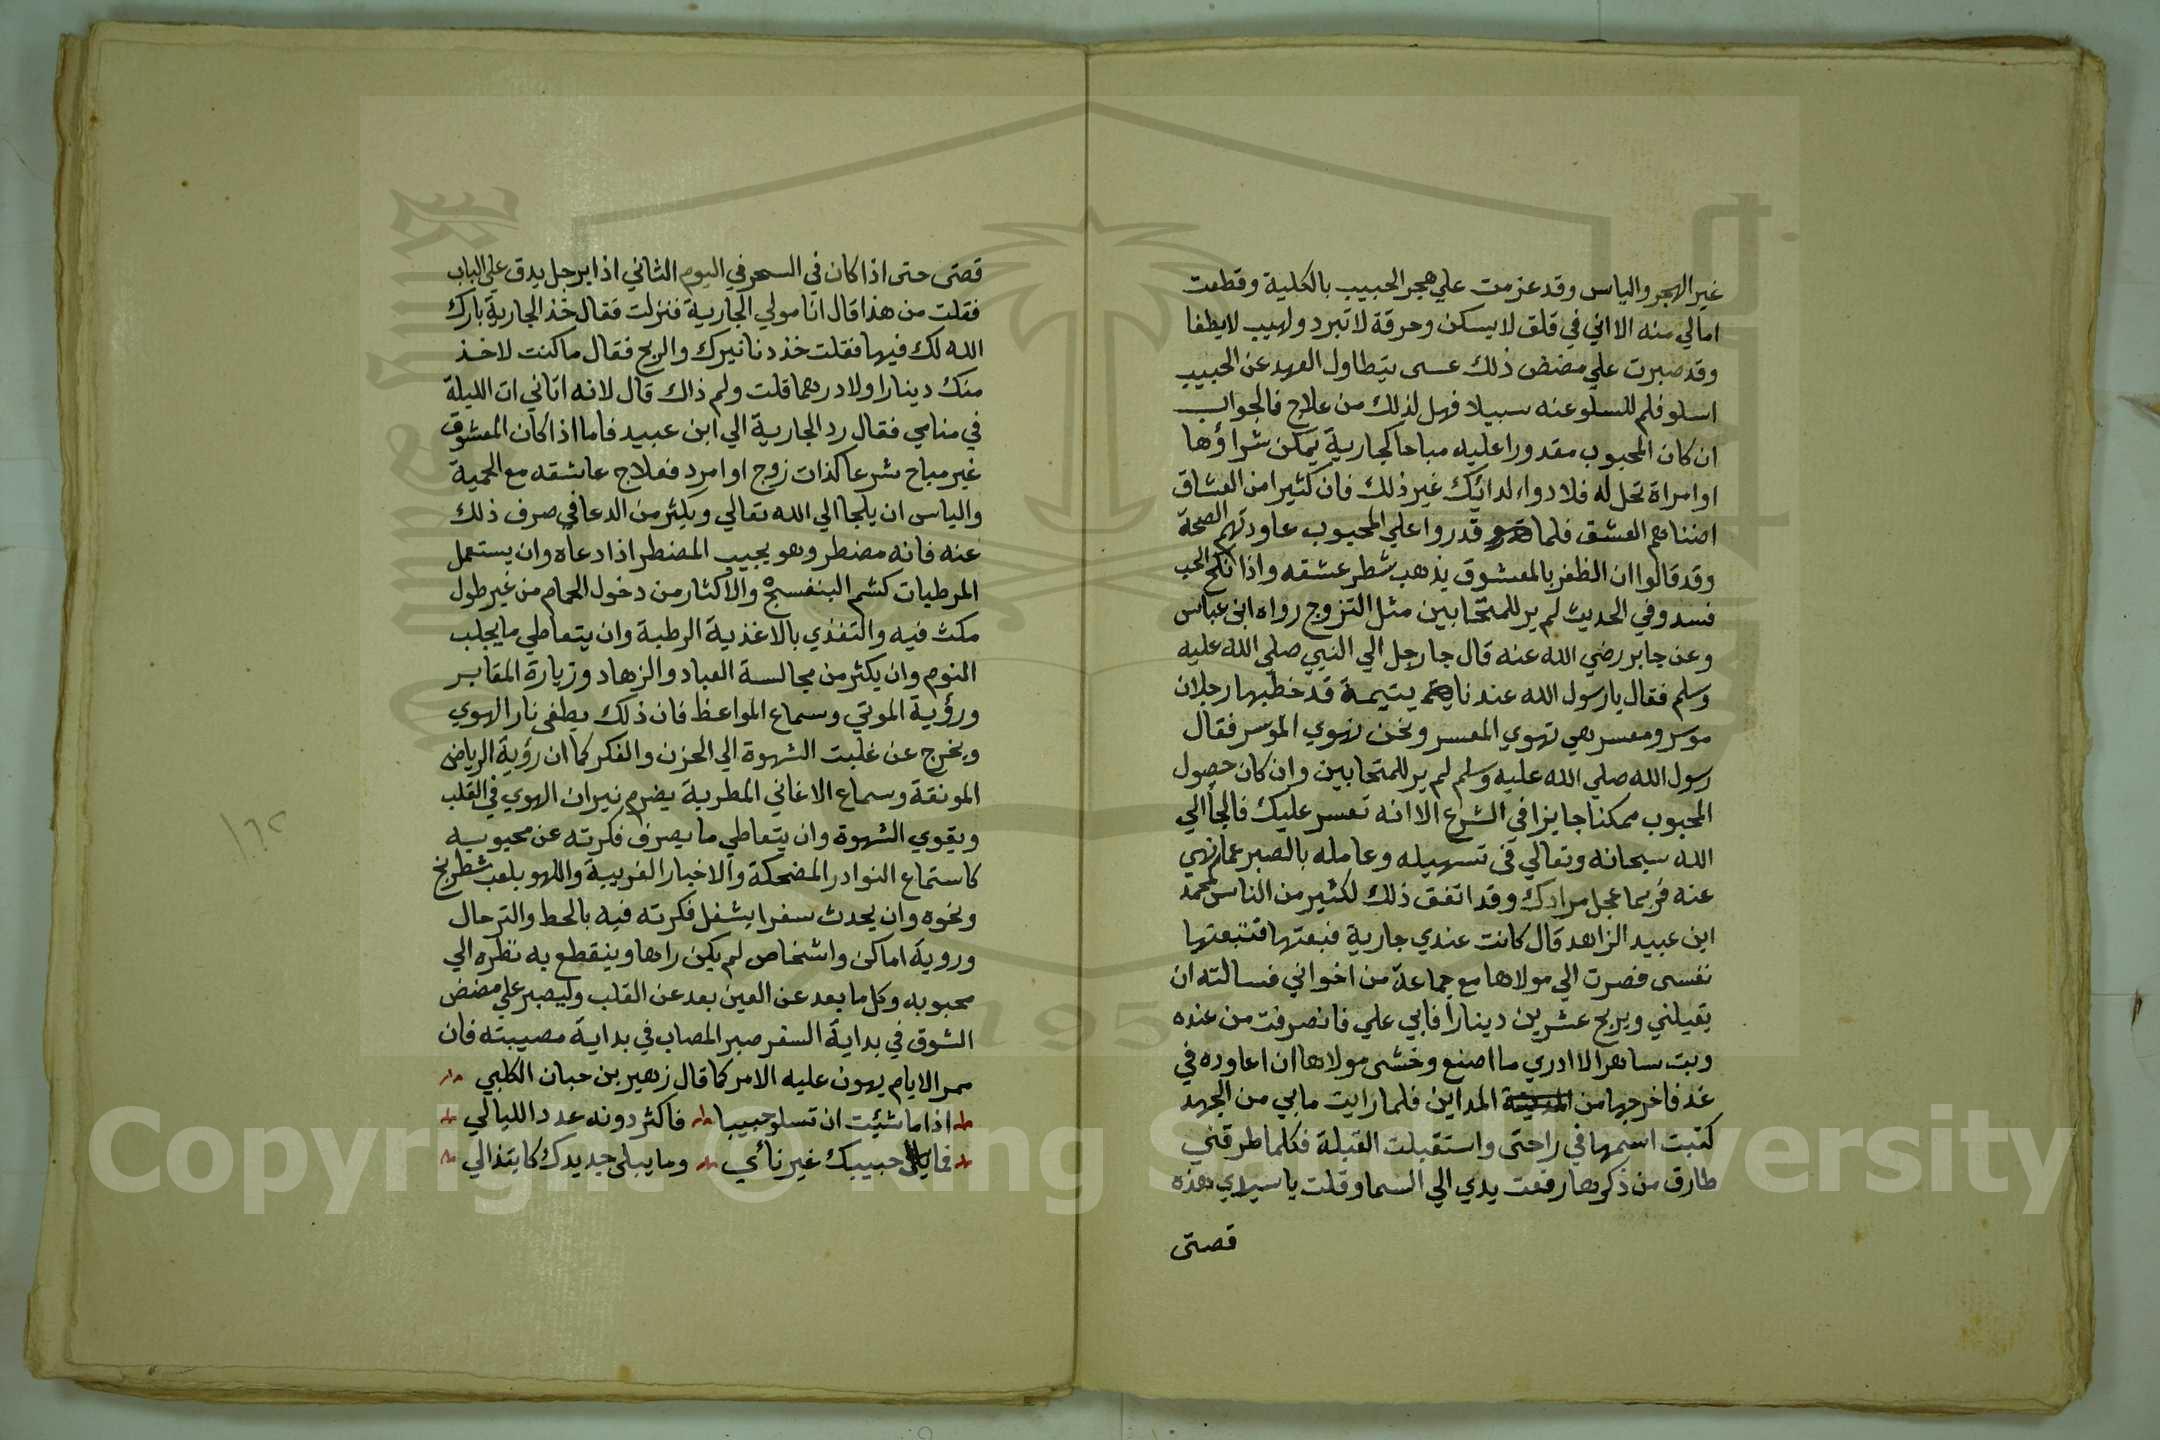 غير الهجر والياس وقد عزمت علي هجر الحبيب بالكلية وقطعت
امالي منه الا اني في قلق لا يسكن وحرقة لا تبرد ولهيب لا يطفا
وقد صبرت علي مضض ذلك عسى يتطاول العهد عن الحبيب
اسلو فلم للسلو عنه سبيلا فهل لذلك من علاج فالجواب
ان كان المحبوب مقدورا عليه مباحا كجارية يمكن شراؤها
او امراة تحل له فلا دواء لدائك غير ذلك فان كثيرا من العشاق
اضناهم العشق فلما قدروا علي المحبوب عاودتهم الصحة
وقد قالوا ان الظفر بالمعشوق يذهب شطر عشقه واذا نكح الحب
فسد وفي الحديث لم ير للمتحابين مثل التزوج رواه ابن عباس
وعن جابر رضي الله عنه قال جا رجل الي النبي صلي الله عليه
وسلم فقال يا رسول الله عندنا يتيمة قد خطبها رجلان
موسر ومعسر هي تهوي المعسر ونحن نهوي الموسر فقال
رسول الله صلي الله عليه وسلم لم ير للمتحابين وان كان حصول
المحبوب ممكنا جايزا في الشرع الا انه تعسر عليك فالجأ الي
الله سبحانه وتعالي في تسهيله وعامله بالصبر عما نهي
عنه فربما عجل مرادك وقد اتفق ذلك لكثير من الناس محمد
ابن عبيد الزاهد قال كانت عندي جارية فبعتها فتبعتها
نفسى فصرت الي مولاها مع جماعة من اخواني فسالته ان
يقيلني ويربح عشرين دينارا فابي علي فانصرفت من عنده
وبت ساهرا لا ادري ما اصنع وخشى مولاها ان اعاوده في
غد فاخرجها من المداين فلما رايت ما بي من الجهد
كتبت اسمها في راحتى واستقبلت القبلة فكلما طرقني
طارق من ذكرها رفعت يدي الي السما وقلت يا سيدي هذه
قصتى
قصتى حتى اذا كان في السحر في اليوم الثاني اذا برجل يدق علي الباب
فقلت من هذا قال انا مولي الجارية فنزلت فقال خذ الجارية بارك
الله لك فيها فقلت خذ دنانيرك والربح فقال ما كنت لاخذ
منك دينارا ولا درهما قلت ولم ذاك قال لانه اتاني ات الليلة
في منامي فقال رد الجارية الي ابن عبيد فاما اذا كان المعشوق
غير مباح شرعا كذات زوج او امرد فعلاج عاشقه مع الحمية
والياس ان يلجا الي الله تعالي ويكثر من الدعا في صرف ذلك
عنه فانه مضطر وهو يجيب المضطر اذا دعاه وان يستعمل
المرطبات كشم البنفسج والاكثار من دخول الحمام من غير طول
مكث فيه والتغذي بالاغذية الرطبة وان يتعاطي ما يجلب
النوم وان يكثر من مجالسة العباد والزهاد وزيارة المقابر
ورؤية الموتي وسماع المواعظ فان ذلك يطفى نار الهوي
ويخرج عن غلبت الشهوة الي الحزن والفكر كما ان رؤية الرياض
المونقة وسماع الاغاني المطربة يضرم نيران الهوي في القلب
ويقوي الشهوة وان يتعاطي ما يصرف فكرته عن محبوبه
كاستماع النوادر المضحكة والاخبار الغريبة واللهو بلعب شطرنج
ونحوه وان يحدث سفرا يشغل فكرته فيه بالحط والترحال
وروية اماكن واشخاص لم يكن راها وينقطع به نظره الي
محبوبه وكل ما بعد عن العين بعد عن القلب وليصبر علي مضض
الشوق في بداية السفر صبر المصاب في بداية مصيبته فان
ممر الايام يهون عليه الامر كما قال زهير بن حبان الكلبي
اذا ما شئت ان تسلو حبيبا فاكثر دونه عدد الليالي
فما يسلى حبيبك غير نائي وما يبلى جديدك كابتذالي
١٦٢
Copyright © King Saud University
1957